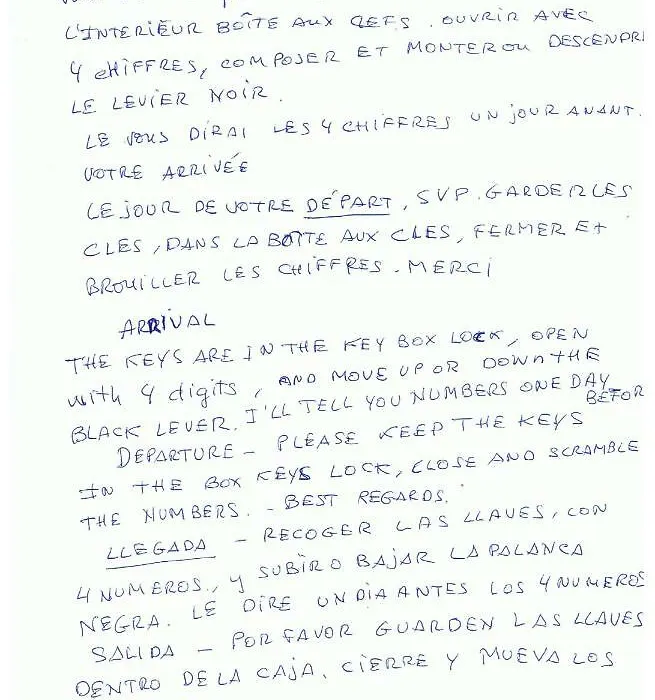 L'INTERIEUR BOÎTE AUX CLEFS. OUVRIR AVEC
4 CHIFFRES, COMPOSER ET MONTER OU DESCENDRE
LE LEVIER NOIR.
LE VOUS DIRAI LES 4 CHIFFRES UN JOUR AVANT.
VOTRE ARRIVÉE
LE JOUR DE VOTRE DÉPART, SVP. GARDER LES
CLES, DANS LA BOITE AUX CLES, FERMER ET
BROUILLER LES CHIFFRES. MERCI
ARRIVAL
THE KEYS ARE IN THE KEY BOX LOCK, OPEN
with 4 digits, AND MOVE UP OR DOWN THE
BLACK LEVER. I'LL TELL YOU NUMBERS ONE DAY BEFOR
DEPARTURE - PLEASE KEEP THE KEYS
IN THE BOX KEYS LOCK, CLOSE AND SCRAMBLE
THE NUMBERS. - BEST REGARDS.
LLEGADA - RECOGER LAS LLAVES, CON
4 NUMEROS., Y SUBIR O BAJAR LA PALANCA
NEGRA. LE DIRE UN DIA ANTES LOS 4 NUMEROS
SALIDA - POR FAVOR GUARDEN LAS LLAVES
DENTRO DE LA CAJA. CIERRE Y MUEVA LOS